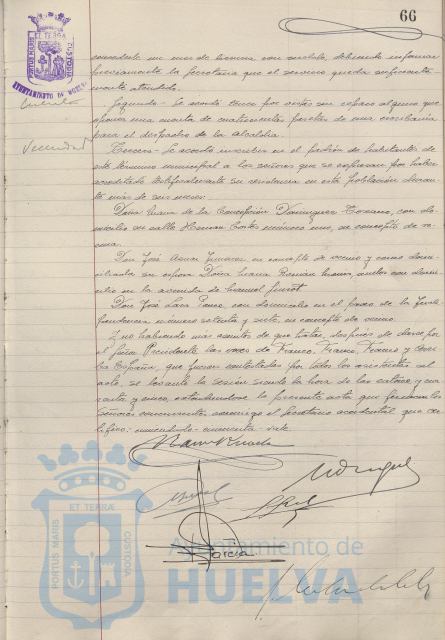 66
PORTUS MARIS ET TERRÆ CUSTODIA
AYUNTAMIENTO DE HUELVA
concederle un mes de licencia con sueldo, debiendo informar
previamente la Secretaría que el servicio queda suficiente
mente atendido.
Segundo - Se acordó
una cuenta de cuatrocientas pesetas de una
para el despacho de la Alcaldía.
Vecindad
Tercero - Se acordó inscribir en el padrón de habitantes de
este término municipal a los señores que se expresan, por haber
acreditado su residencia en esta población duran
te más de seis meses:
Doña María de la Concepción Domínguez Toscano, con do
micilio en calle Hernán Cortés número uno, en concepto de ve
cina.
Don José Aznar Jiménez en concepto de vecino y como domi
ciliada su esposa Doña María Román ambos con domi
cilio en la avenida de Manuel Siurot.
Don José Lara Ponce, con domicilio en el paseo de la Inde
pendencia número setenta y siete, en concepto de vecino.
Y no habiendo más asuntos de que tratar, después de darse por
el Señor Presidente las voces de Franco, Franco, Franco y Arri
ba España, que fueron contestadas por todos los asistentes al
acto, se levantó la sesión siendo la hora de las catorce y cua
renta y cinco, extendiéndose la presente acta que firman los
Señores concurrentes conmigo el Secretario accidental que cer
tifico: enmendado - cincuenta - vale
García
PORTUS MARIS ET TERRÆ CUSTODIA
Ayuntamiento de
HUELVA